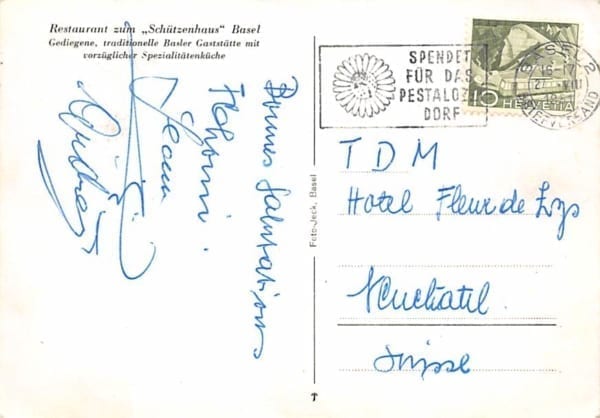 Restaurant zum „Schützenhaus" Basel
Gediegene, traditionelle Basler Gaststätte mit
vorzüglicher Spezialitätenküche
Bonnes Salutations
Foto-Jeck, Basel
SPENDET
FÜR DAS
PESTALOZZI
DORF
BASEL 2
BRIEFVERSAND
10 HELVETIA
TDM
Hotel Fleur de Lys
Neuchatel
Suisse